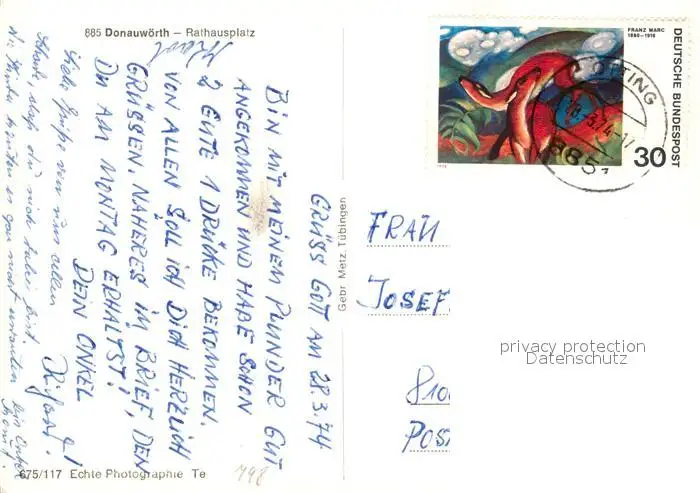 885 Donauwörth – Rathausplatz
GRÜSS GOTT AM 28.3.74
BIN MIT MEINEM PLUNDER GUT
ANGEKOMMEN UND HABE SCHON
2 GUTE 1 DRÜCKE BEKOMMEN.
VON ALLEN SOLL ICH DICH HERZLICH
GRÜSSEN. NÄHERES IM BRIEF, DEN
DU AM MONTAG ERHÄLTST!
DEIN ONKEL
Richard!
Liebe Grüße von uns allen
Schade, daß du nicht dabei bist.
Die Kinder
Gebr Metz, Tübingen
675/117 Echte Photographie Te
798
FRANZ MARC
1880-1916
DEUTSCHE BUNDESPOST
30
1974
885
FRAU
JOSEF
810
POS
privacy protection
Datenschutz